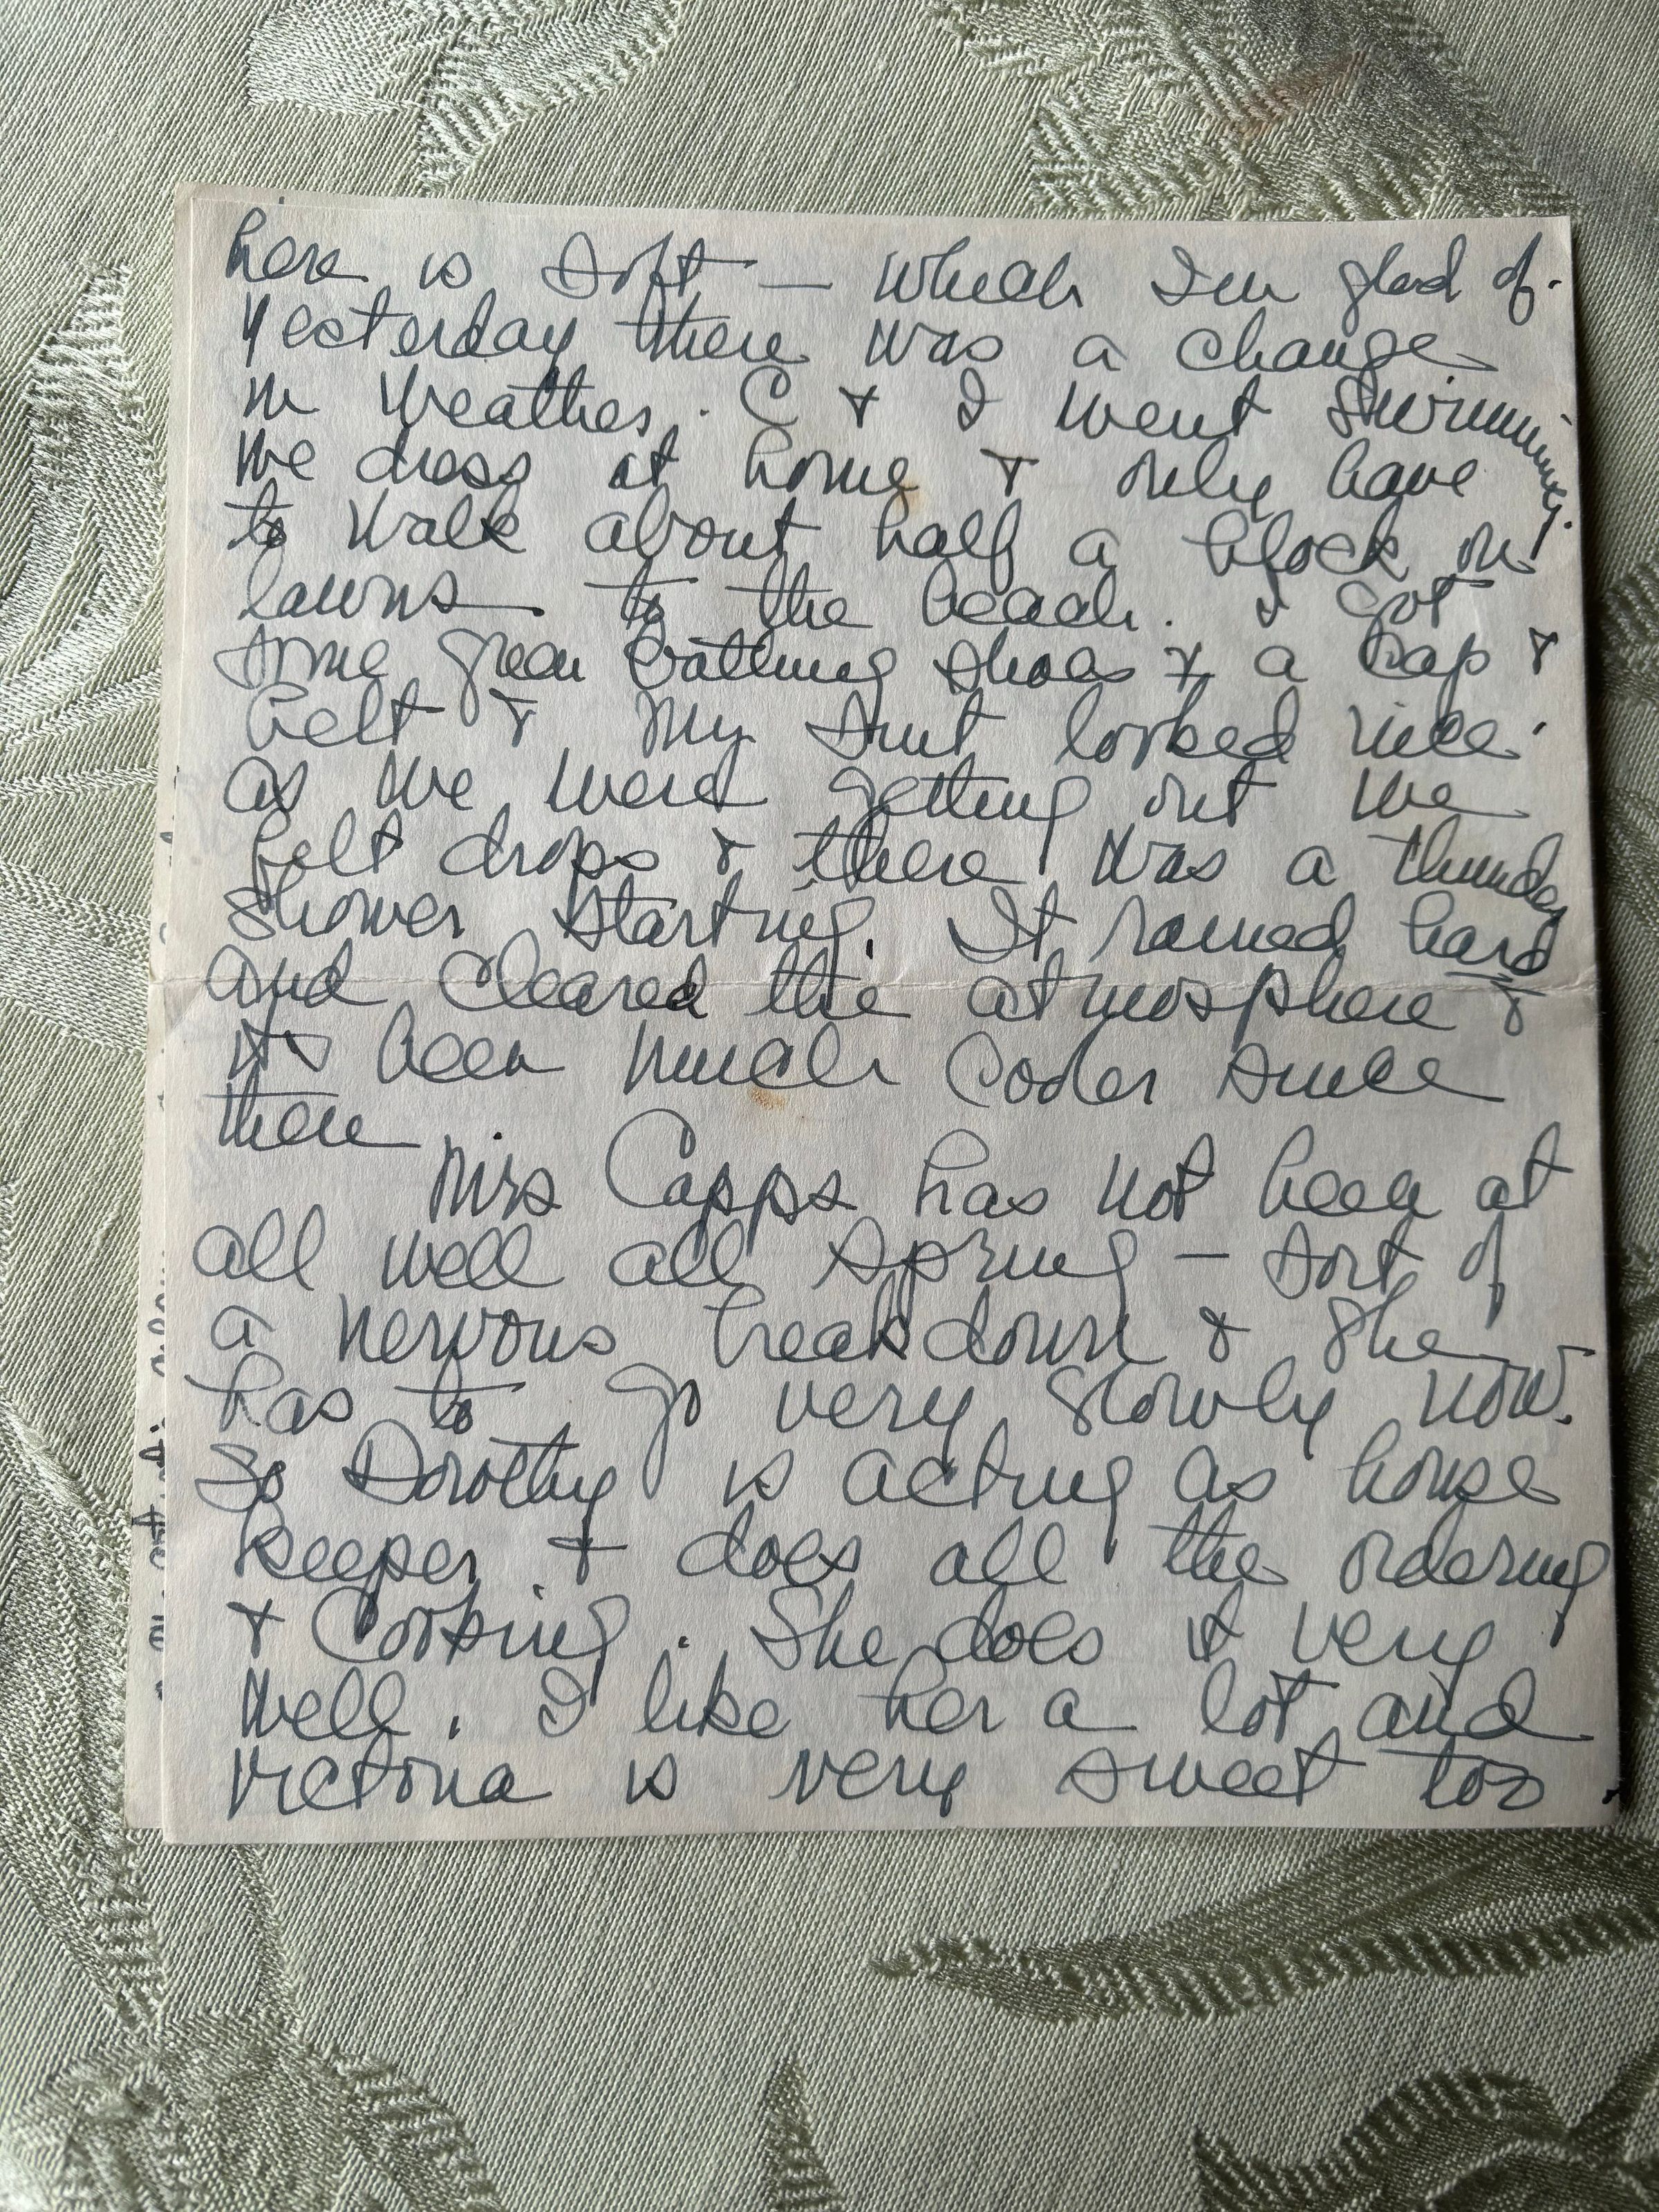 here is soft — which I'm glad of.
Yesterday there was a change
in weather. C & I went swimming.
We dress at home & only have
to walk about half a block on
lawns to the beach. I got
some green bathing shoes & a cap &
belt & my suit looked nice.
as we were getting out we
felt drops & there was a thunder
shower starting. It rained hard
and cleared the atmosphere &
it's been much cooler since
then.
Mrs Capps has not been at
all well all spring — sort of
a nervous breakdown & she
has to go very slowly now.
So Dorothy is acting as house
keeper & does all the ordering
& cooking. She does it very
well. I like her a lot and
Victoria is very sweet too.